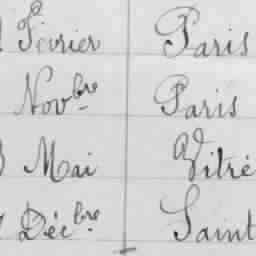 Février Paris
Novbre Paris
Mai Vitré
Décbre Saint